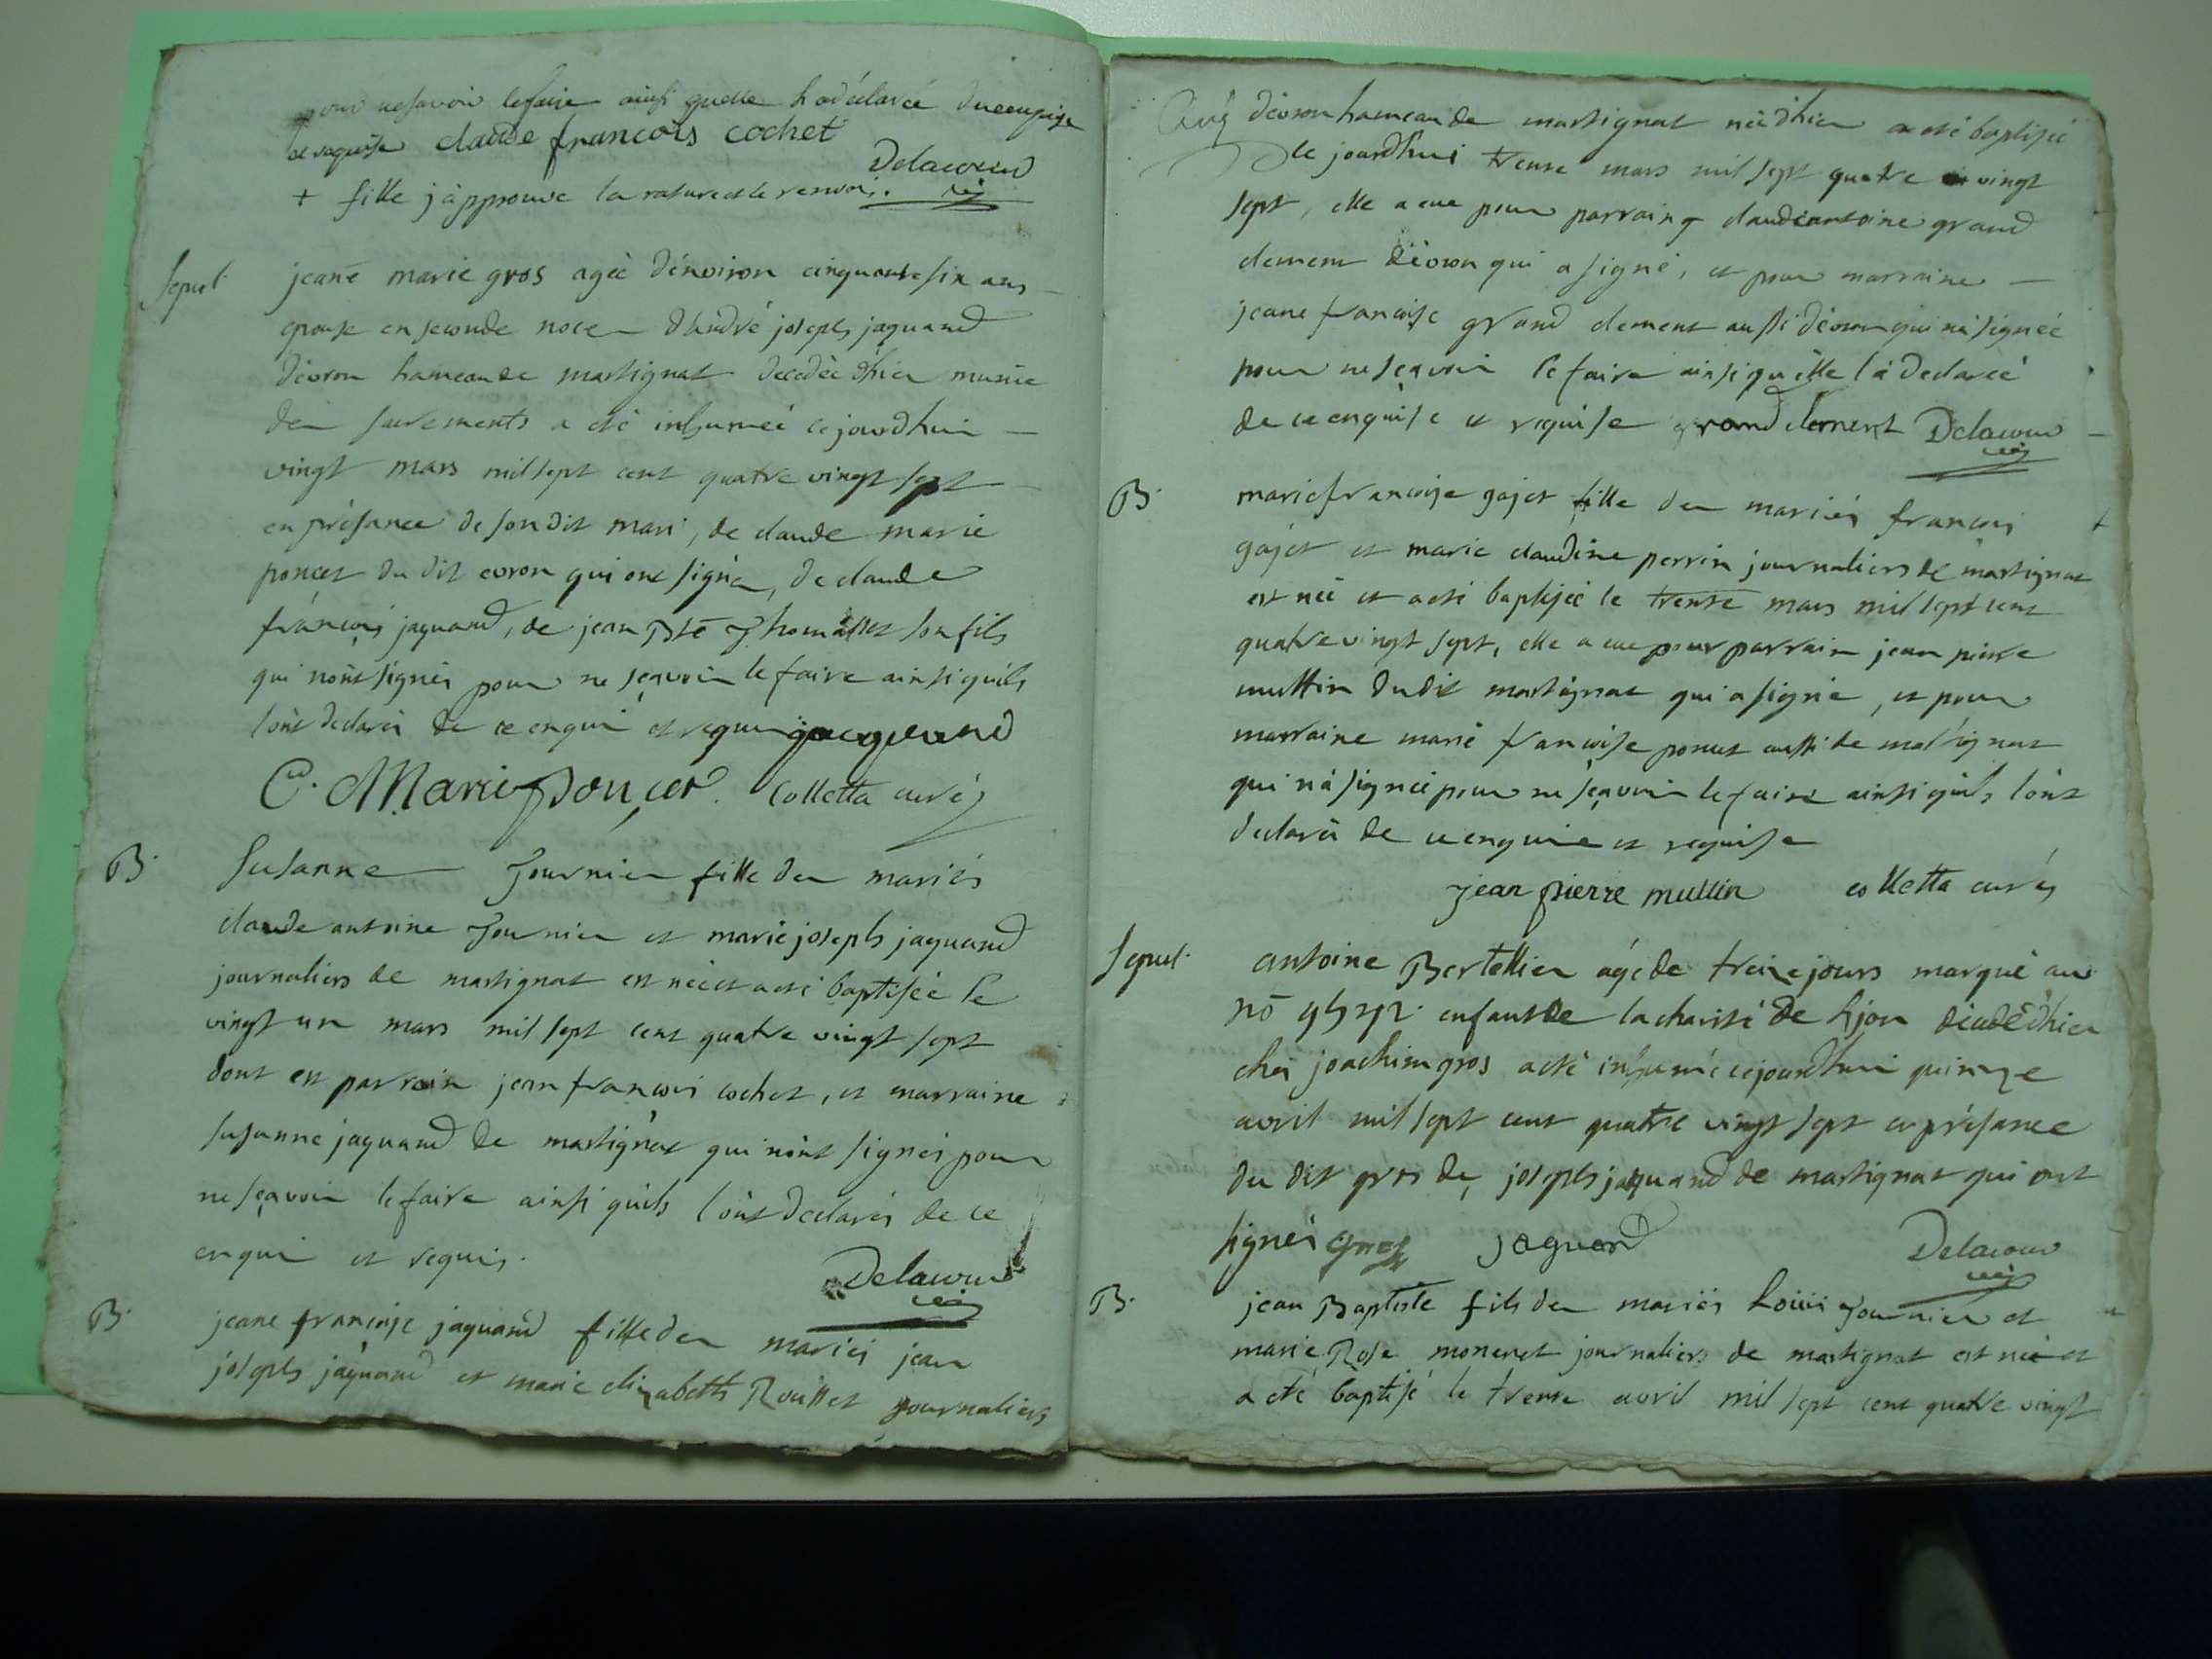 pour ne savoir le faire ainsi quelle
et requise claude francois cochet
Delacour
+ fille j'approuve la rature et le renvoi.
Sepul. jeane marie gros agée d'environ cinquante six ans
epouse en seconde noce d'André joseph jaquand
d'evron hameau de martignat decedée d'hier munie
des sacrements a été inhumée ce jourd'hui
vingt mars mil sept cent quatre vingt sept
en présance de son dit mari, de claude marie
poncet du dit evron qui ont signés, de claude
francois jaquand, de jean Bte Thomasset son fils
qui n'ont signés pour ne sçavoir le faire ainsi qu'ils
l'ont declarés de ce enquis et requis jacquand
C. Marie Ponçet. Colletta curé
B. Susanne Fournier fille des mariés
claude antoine Fournier et marie joseph jaquand
journaliers de martignat est née et a été baptisée le
vingt un mars mil sept cent quatre vingt sept
dont est parrain jean francois cochet, et marraine
susanne jaquand de martignat qui n'ont signés pour
ne sçavoir le faire ainsi qu'ils l'ont declarés de ce
enquis et requis.
Delacour
B. jeane francoise jaquand fille des mariés jean
joseph jaquand et marie elizabeth Rousset journaliers
d'evron hameau de martignat née d'hier a été baptisée
le jourd'hui trente mars mil sept quatre vingt
sept, elle a eue pour parraing claude antoine grand
clement d'évron qui a signé, et pour marraine
jeane francoise grand clement aussi d'évron qui n'a signée
pour ne sçavoir le faire ainsi qu'elle l'a declarée
de ce enquise et requise grand clement Delacour
B. marie francoise gajet fille des mariés francois
gajet et marie claudine perrin journaliers de martignat
est née et a été baptisée le trente mars mil sept cent
quatre vingt sept, elle a eue pour parrain jean pierre
multin du dit martignat qui a signé, et pour
marraine marie francoise poncet aussi de martignat
qui n'a signée pour ne sçavoir le faire ainsi qu'ils l'ont
declarés de ce enquise et requise
jean pierre multin colletta curé
Sepul. antoine Bertellier agé de treize jours marqué au
no enfant de la charité de Lyon décédé d'hier
chés joachim gros a été inhumé ce jourd'hui quinze
avril mil sept cent quatre vingt sept en présance
du dit gros de joseph jaquand de martignat qui ont
signés Gros jaquand Delacour
B. jean Baptiste fils des mariés Louis Fournier et
marie Rose moneret journaliers de martignat est né et
a été baptisé le trente avril mil sept cent quatre vingt